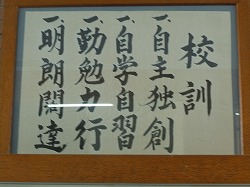 校訓
一、自主独創
一、自学自習
一、勤勉力行
一、明朗闊達